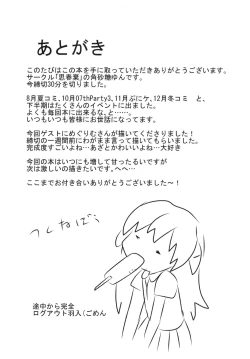 あとがき
このたびはこの本を手に取っていただきありがとうございます。
サークル「思春巣」の角砂糖ゆんです。
今締切30分を切りました。
8月夏コミ、10月07thParty3、11月ぷにケ、12月冬コミ と、
下半期はたくさんのイベントに出ました。
よくも毎回本に出来るな、と……。
いつもいつも皆様にお世話になってます。
今回ゲストにめぐりむさんが描いてくださりました！
締切の一週間前にわがまま言って描いてもらいました。
完成度すごいよね…あざとかわいいよね…大好き
今回の本はいつにも増して甘ったるいですが
次は激しいの描きたいです。へへ…
ここまでお付き合いありがとうございました～！
つくねば:
途中から完全
ログアウト羽入(ごめん